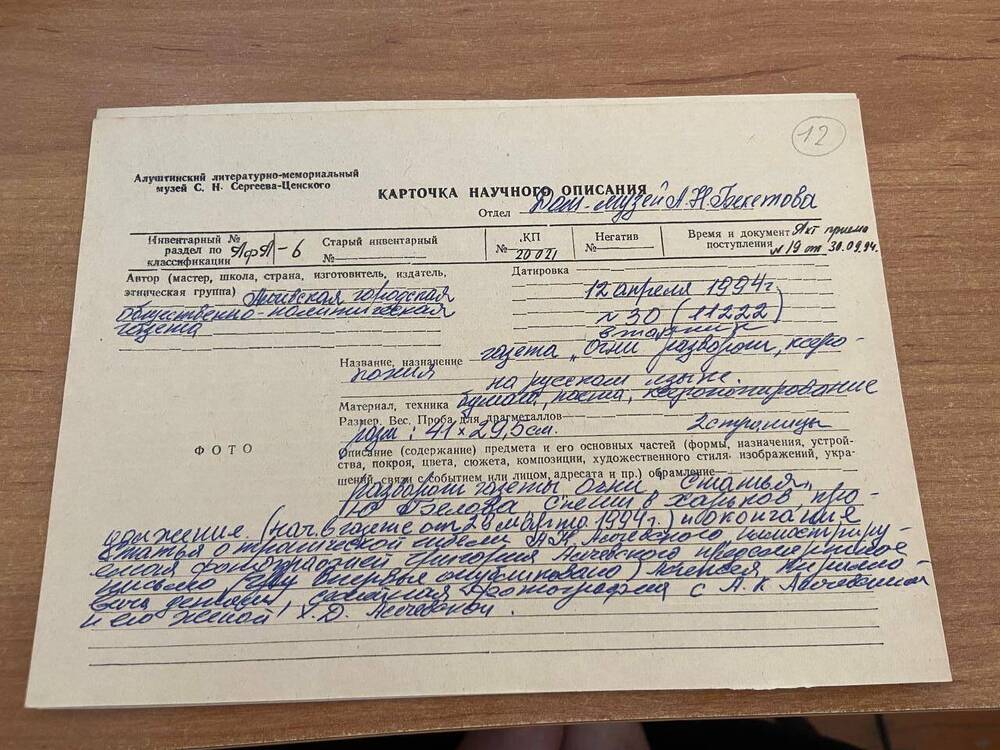 12
Алуштинский литературно-мемориальный
музей С. Н. Сергеева-Ценского
КАРТОЧКА НАУЧНОГО ОПИСАНИЯ
Отдел Дом-музей А.Н. Бекетова
Инвентарный № раздел по классификации АфА-6
Старый инвентарный №
КП № 20021
Негатив №
Время и документ поступления Акт приема № 19 от 30.09.94.
Автор (мастер, школа, страна, изготовитель, издатель,
этническая группа) Алчевская городская
общественно-политическая
газета
Датировка
12 апреля 1994г.
№ 30 (11222)
вторник
Название, назначение газета „Огни разворот, ксеро-
копия на русском языке.
Материал, техника бумага, паста, ксерокопирование
Размер. Вес. Проба для драгметаллов
разм: 41×29,5см. 2 страницы
ФОТО
Описание (содержание) предмета и его основных частей (формы, назначения, устрой-
ства, покроя, цвета, сюжета, композиции, художественного стиля изображений, укра-
шений, связи с событием или лицом, адресата и пр.) обрамление
разворот газеты Огни Статья
Ю Белова Спеши в Харьков про-
должение. (нач. в газете от 26 марта 1994г.) и окончание
статья о трагической гибели А.К. Алчевского, иллюстриру-
емая фотографией Григория Алчевского предсмертное
письмо (впервые опубликовано) Алексея Кирилло-
вича фотография с А.К Алчевским
и его женой Х.Д. Алчевской.